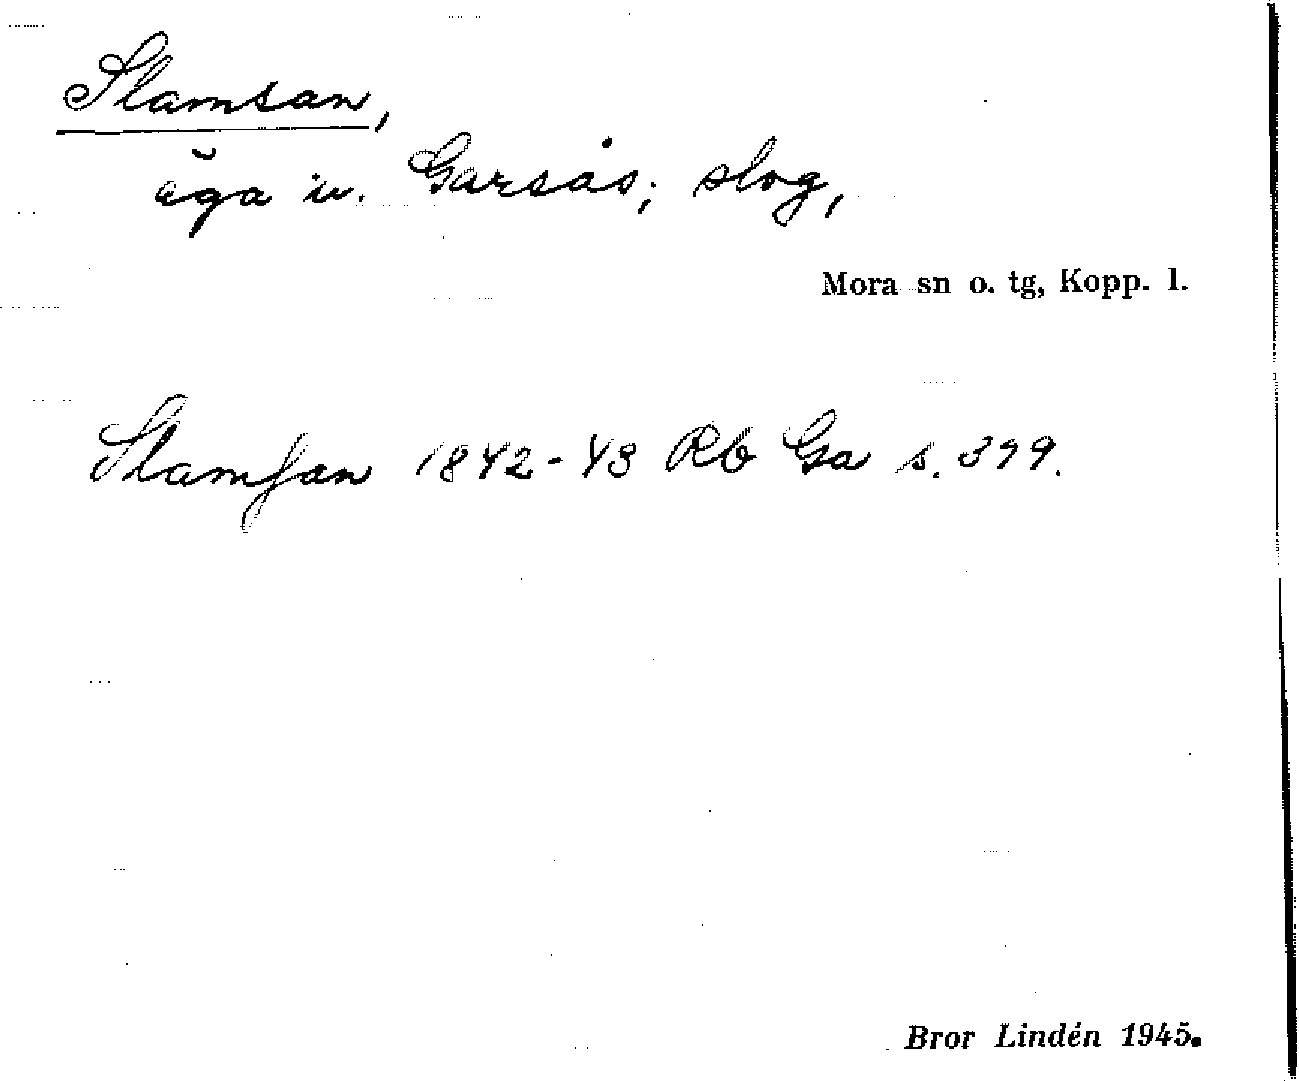 Slamsan,
äga u. Garsås; slog,
Mora sn o. tg, Kopp. l.
Slamſan 1842-43 Rb Ga s. 399.
Bror Lindén 1945.